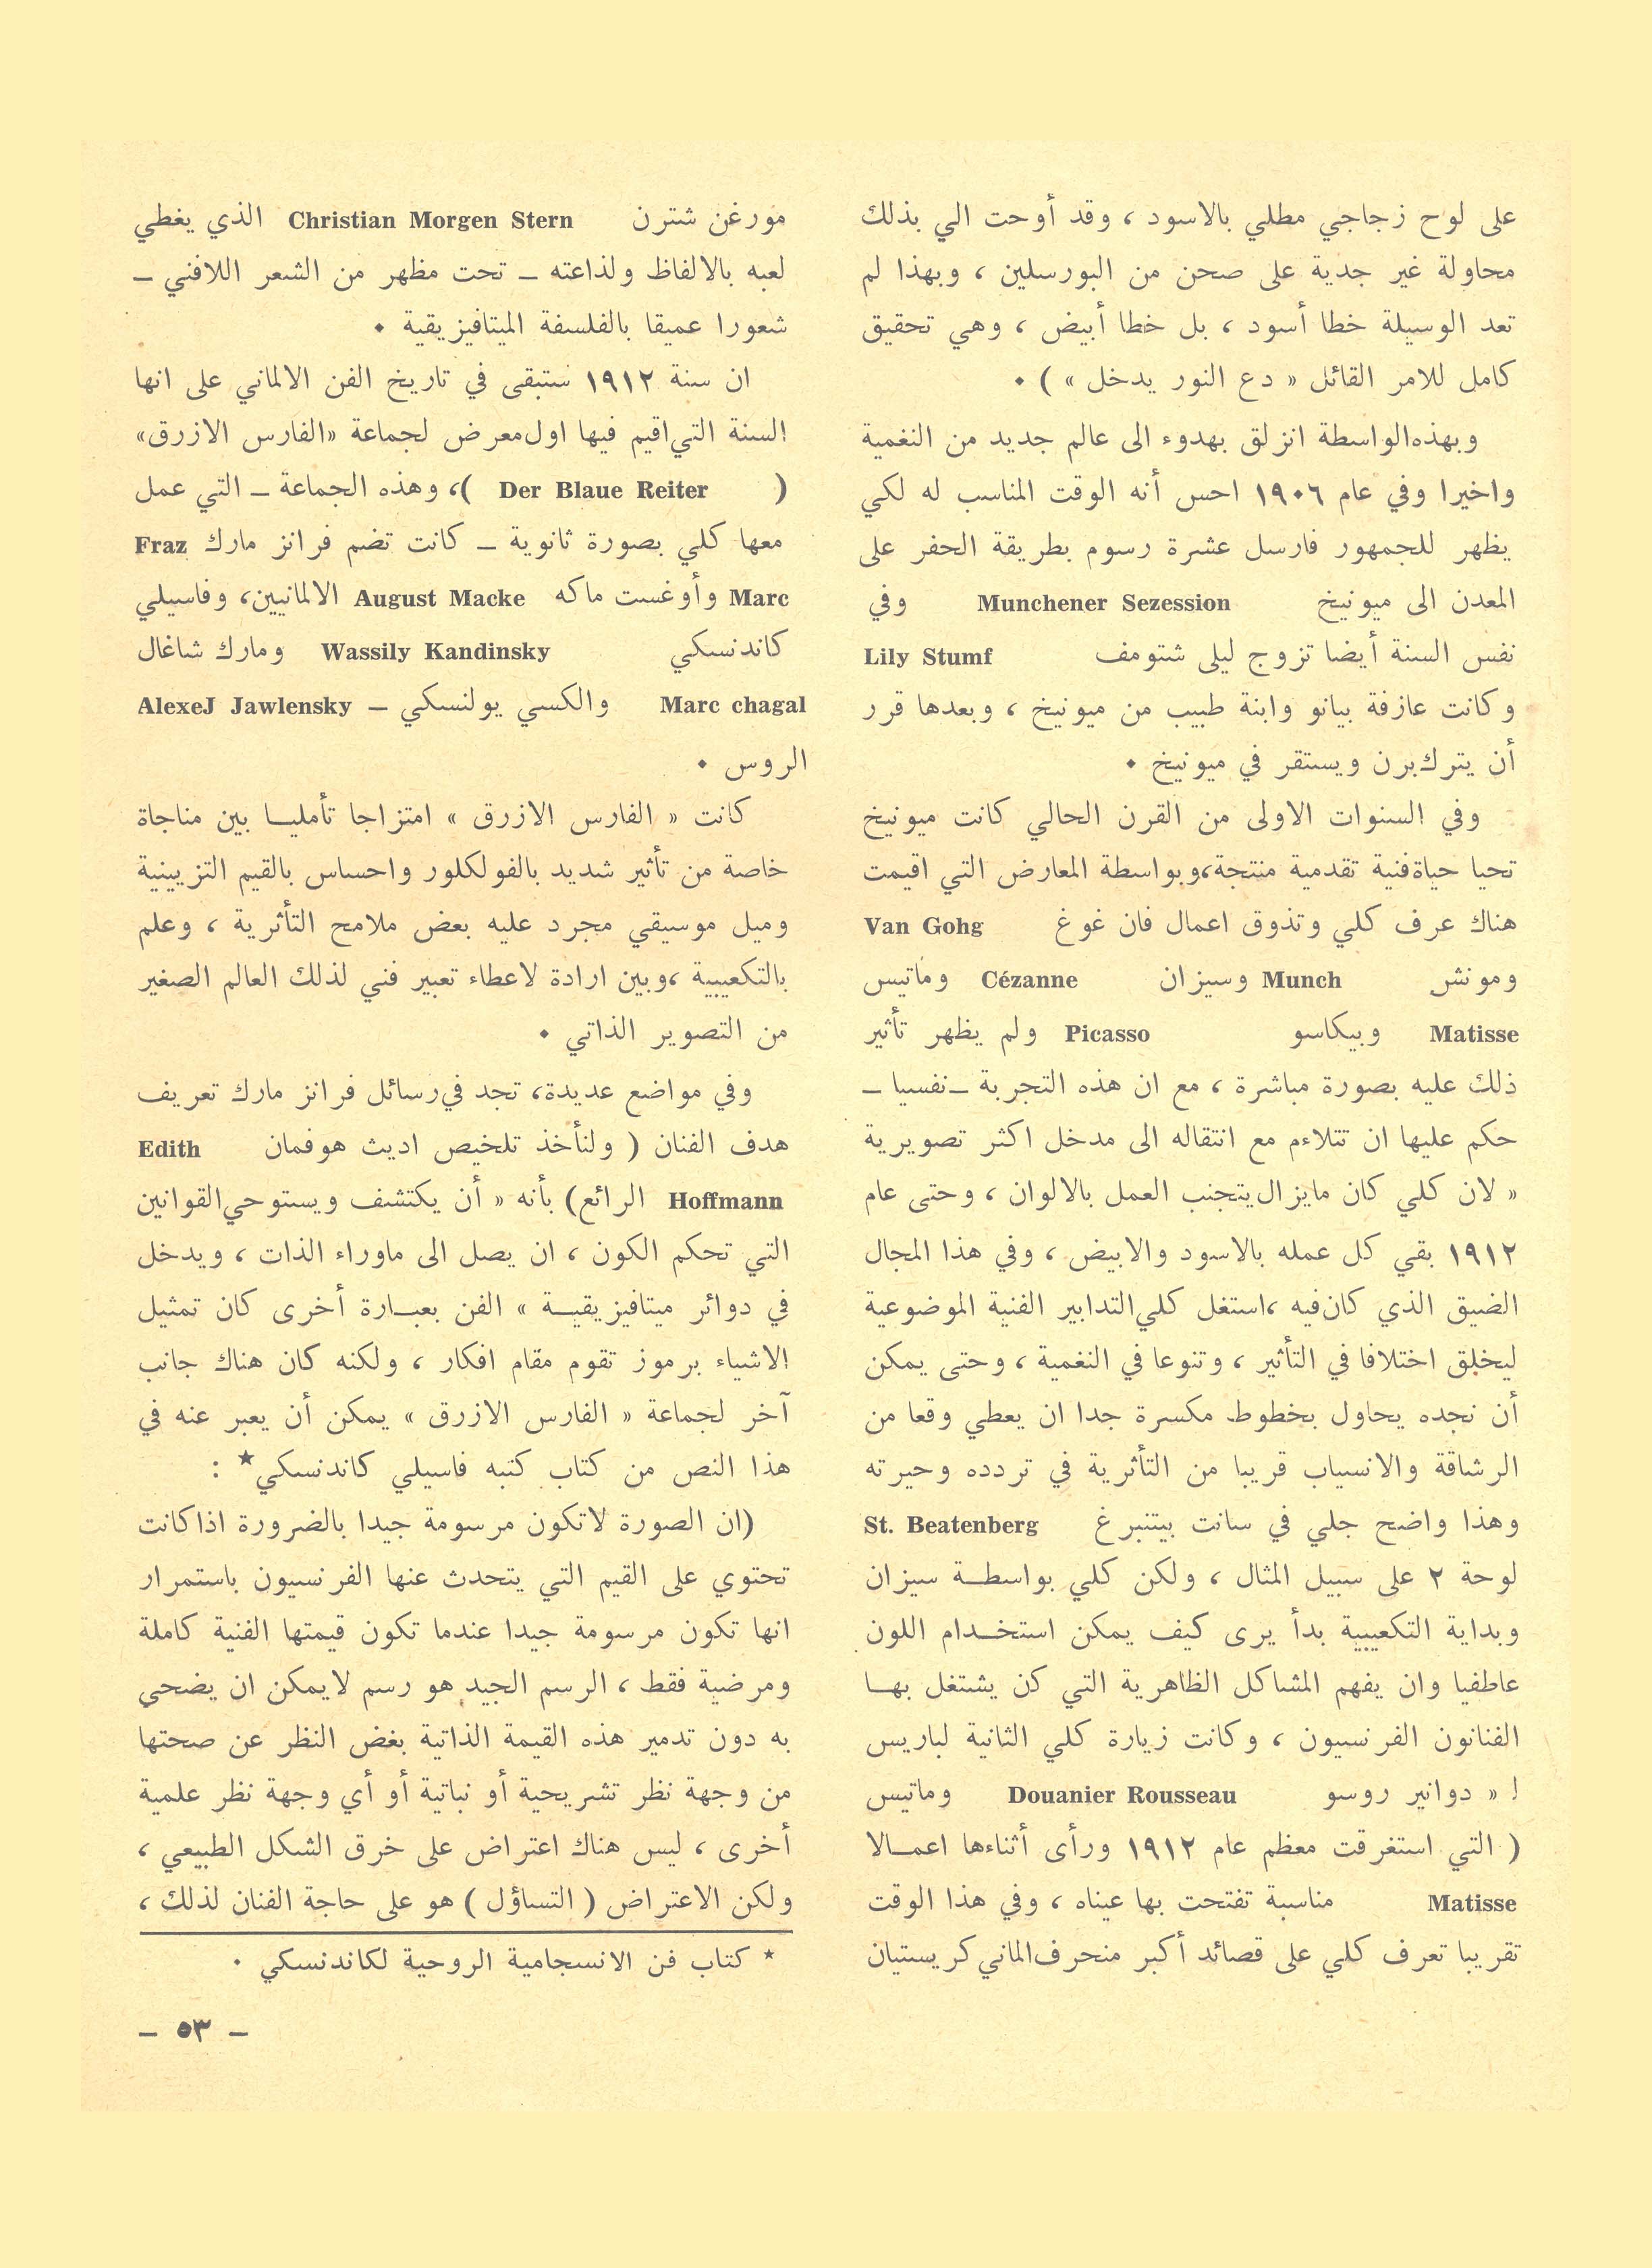 على لوح زجاجي مطلي بالاسود ، وقد أوحت الي بذلك
محاولة غير جدية على صحن من البورسلين ، وبهذا لم
تعد الوسيلة خطا أسود ، بل خطا أبيض ، وهي تحقيق
كامل للامر القائل « دع النور يدخل » ) .
وبهذه الواسطة انزلق بهدوء الى عالم جديد من النغمية
واخيرا وفي عام ١٩٠٦ احس أنه الوقت المناسب له لكي
يظهر للجمهور فارسل عشرة رسوم بطريقة الحفر على
المعدن الى ميونيخ Munchener Sezession وفي
نفس السنة أيضا تزوج ليلى شتومف Lily Stumf
وكانت عازفة بيانو وابنة طبيب من ميونيخ ، وبعدها قرر
أن يترك برن ويستقر في ميونيخ .
وفي السنوات الاولى من القرن الحالي كانت ميونيخ
تحيا حياة فنية تقدمية منتجة، وبواسطة المعارض التي اقيمت
هناك عرف كلي وتذوق اعمال فان غوغ Van Gohg
ومونش Munch وسيزان Cézanne وماتيس
Matisse وبيكاسو Picasso ولم يظهر تأثير
ذلك عليه بصورة مباشرة ، مع ان هذه التجربة – نفسيا –
حكم عليها ان تتلاءم مع انتقاله الى مدخل اكثر تصويرية
« لان كلي كان مايزال يتجنب العمل بالالوان ، وحتى عام
١٩١٢ بقي كل عمله بالاسود والابيض ، وفي هذا المجال
الضيق الذي كان فيه ، استغل كلي التدابير الفنية الموضوعية
ليخلق اختلافا في التأثير ، وتنوعا في النغمية ، وحتى يمكن
أن نجده يحاول بخطوط مكسرة جدا ان يعطي وقعا من
الرشاقة والانسياب قريبا من التأثرية في تردده وحيرته
وهذا واضح جلي في سانت بيتنبرغ St. Beatenberg
لوحة ٢ على سبيل المثال ، ولكن كلي بواسطة سيزان
وبداية التكعيبية بدأ يرى كيف يمكن استخدام اللون
عاطفيا وان يفهم المشاكل الظاهرية التي كن يشتغل بها
الفنانون الفرنسيون ، وكانت زيارة كلي الثانية لباريس
ل « دوانير روسو Douanier Rousseau وماتيس
( التي استغرقت معظم عام ١٩١٢ ورأى أثناءها اعمالا
Matisse مناسبة تفتحت بها عيناه ، وفي هذا الوقت
تقريبا تعرف كلي على قصائد أكبر منحرف الماني كريستيان
مورغن شترن Christian Morgen Stern الذي يغطي
لعبه بالالفاظ ولذاعته – تحت مظهر من الشعر اللافني –
شعورا عميقا بالفلسفة الميتافيزيقية .
ان سنة ١٩١٢ ستبقى في تاريخ الفن الالماني على انها
السنة التي اقيم فيها اول معرض لجماعة «الفارس الازرق»
( Der Blaue Reiter )، وهذه الجماعة – التي عمل
معها كلي بصورة ثانوية – كانت تضم فرانز مارك Fraz
Marc وأوغست ماكه August Macke الالمانيين، وفاسيلي
كاندنسكي Wassily Kandinsky ومارك شاغال
Marc chagal والكسي يولنسكي – AlexeJ Jawlensky
الروس .
كانت « الفارس الازرق » امتزاجا تأمليا بين مناجاة
خاصة من تأثير شديد بالفولكلور واحساس بالقيم التزيينية
وميل موسيقي مجرد عليه بعض ملامح التأثرية ، وعلم
بالتكعيبية ، وبين ارادة لاعطاء تعبير فني لذلك العالم الصغير
من التصوير الذاتي .
وفي مواضع عديدة، تجد في رسائل فرانز مارك تعريف
هدف الفنان ( ولنأخذ تلخيص اديث هوفمان Edith
Hoffmann الرائع) بأنه « أن يكتشف ويستوحي القوانين
التي تحكم الكون ، ان يصل الى ماوراء الذات ، ويدخل
في دوائر ميتافيزيقية » الفن بعبارة أخرى كان تمثيل
الاشياء برموز تقوم مقام افكار ، ولكنه كان هناك جانب
آخر لجماعة « الفارس الازرق » يمكن أن يعبر عنه في
هذا النص من كتاب كتبه فاسيلي كاندنسكي* :
(ان الصورة لاتكون مرسومة جيدا بالضرورة اذا كانت
تحتوي على القيم التي يتحدث عنها الفرنسيون باستمرار
انها تكون مرسومة جيدا عندما تكون قيمتها الفنية كاملة
ومرضية فقط ، الرسم الجيد هو رسم لايمكن ان يضحي
به دون تدمير هذه القيمة الذاتية بغض النظر عن صحتها
من وجهة نظر تشريحية أو نباتية أو أي وجهة نظر علمية
أخرى ، ليس هناك اعتراض على خرق الشكل الطبيعي ،
ولكن الاعتراض ( التساؤل ) هو على حاجة الفنان لذلك ،
* كتاب فن الانسجامية الروحية لكاندنسكي .
– ٥٣ –